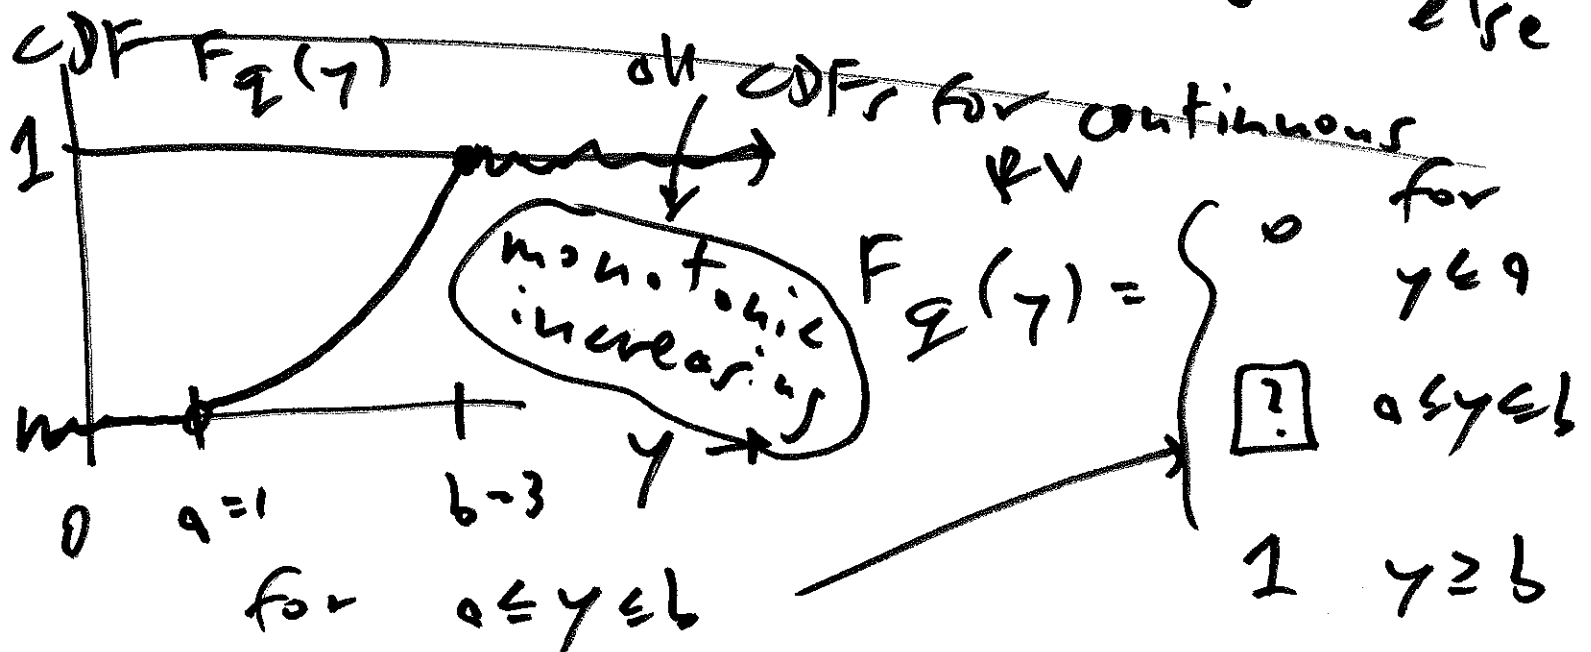 else
CDF F_q(y)
all CDFs for continuous
RV
1
monotonic
increasing
F_q(y) = { 0 for y ≤ a
? a ≤ y ≤ b
1 y ≥ b
y →
0 a=1 b-3
for a ≤ y ≤ b